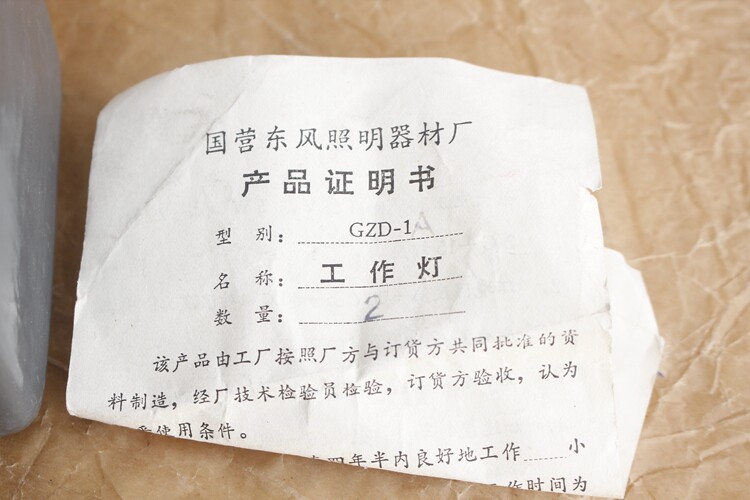 国营东风照明器材厂
产品证明书
型别：GZD-1A
名称：工作灯
数量：2
该产品由工厂按照厂方与订货方共同批准的资
料制造，经厂技术检验员检验，订货方验收，认为
使用条件。
四年半内良好地工作……小
作时间为